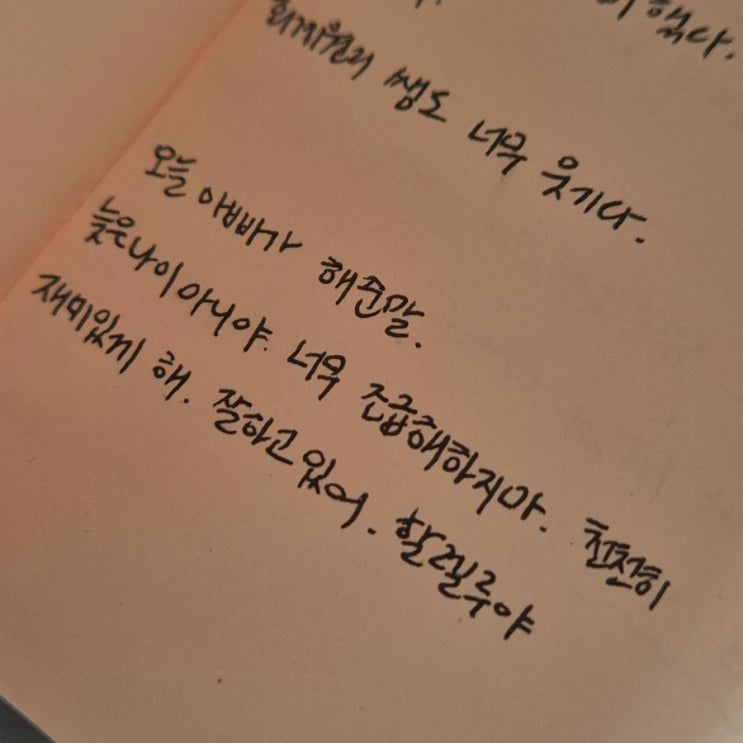 했다.
쌤도 너무 웃기다.
오늘 아빠가 해준말.
늦은나이 아니야. 너무 조급해하지마. 천천히
재미있게 해. 잘하고 있어. 할렐루야